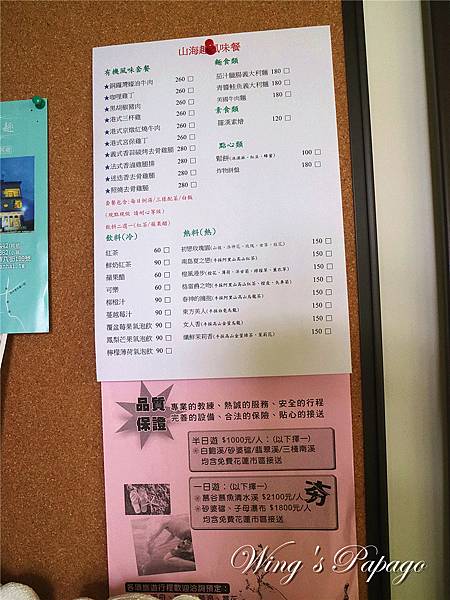 山海 風味餐
有機風味套餐
★銅鑼灣蠔油牛肉 260 □
★咖哩雞丁 260 □
★黑胡椒豬肉 260 □
★港式三杯雞 260 □
★港式京燉紅燒牛肉 260 □
★港式宮保雞丁 260 □
★義式香蒜碳烤去骨雞腿 280 □
★法式香滷雞腿排 280 □
★迷迭香去骨雞腿 280 □
★照燒去骨雞腿 280 □
套餐包含:每日例湯/三樣配菜/白飯
(現點現做 請耐心等候)
飲料二選一(紅茶/蘋果醋)
麵食類
茄汁臘腸義大利麵 180 □
青醬鮭魚義大利麵 180 □
美國牛肉麵 180 □
素食類
羅漢素燴 120 □
點心類
鬆餅 100 □
炸物拼盤 180 □
飲料(冷)
紅茶 60 □
鮮奶紅茶 90 □
蘋果醋 60 □
可樂 60 □
柳橙汁 90 □
蔓越莓汁 90 □
覆盆莓果氣泡飲 90 □
鳳梨芒果氣泡飲 90 □
檸檬薄荷氣泡飲 90 □
熱料(熱)
初戀玫瑰園 150 □
南島夏之戀 150 □
橙風漫步 150 □
格雷爵之吻 150 □
春神的擁抱 150 □
東方美人 150 □
女人香 150 □
爛鮮茉莉香 150 □
品質
保證
專業的教練、熱誠的服務、安全的行程
完善的設備、合法的保險、貼心的接送
半日遊 $1000元/人:(以下擇一)
※白鮑溪/砂婆礑/翡翠溪/三棧南溪
均含免費花蓮市區接送
一日遊:(以下擇一)
※慕谷慕魚清水溪 $2100元/人
※砂婆礑、子母瀑布 $1800元/人
均含免費花蓮市區接送
夯
各項旅遊行程歡迎洽詢預定:
Wing's Papago